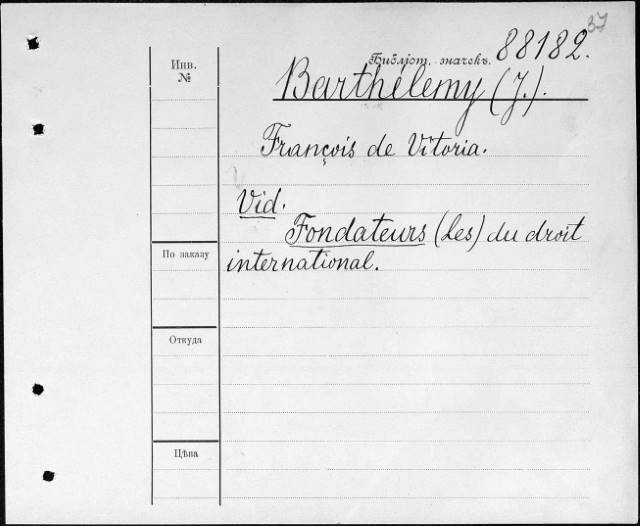 37
Библіот. значекъ. 88182.
Инв.
№
Barthélemy (J.).
François de Vitoria.
Vid.
Fondateurs (Les) du droit
international.
По заказу
Откуда
Цѣна